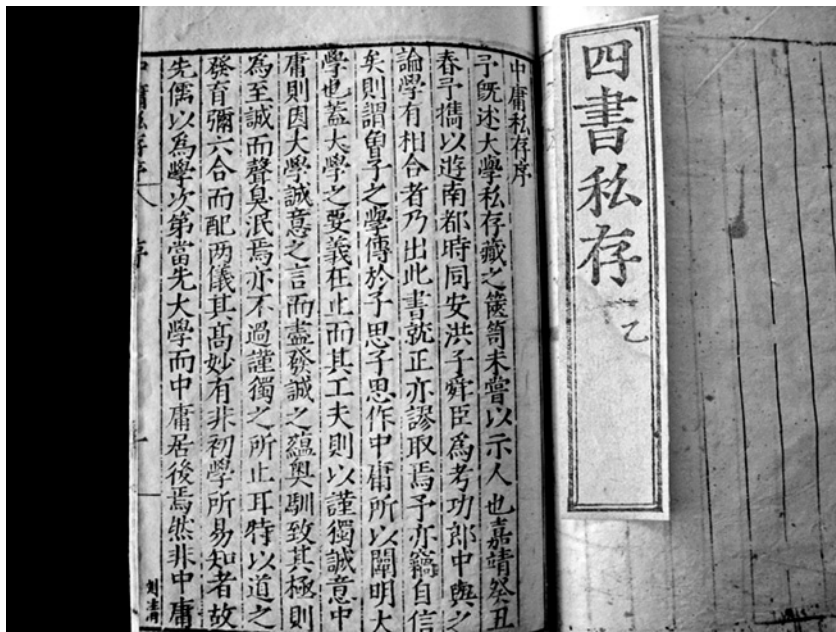 四書私存
乙
中庸私存序
予既述大學私存藏之篋笥未嘗以示人也嘉靖癸丑
春予攜以遊南都時同安洪子舜臣為考功郎中與之
論學有相合者乃出此書就正亦謬取焉予亦竊自信
矣則謂曾子之學傳於子思子思作中庸所以闡明大
學也蓋大學之要義在止而其工夫則以謹獨誠意中
庸則因大學誠意之言而盡發誠之蘊奧馴致其極則
為至誠而聲臭泯焉亦不過謹獨之所止耳特以道之
發育彌六合而配两儀其髙妙有非初學所易知者故
先儒以為學次第當先大學而中庸居後焉然非中庸
中庸私存序
序